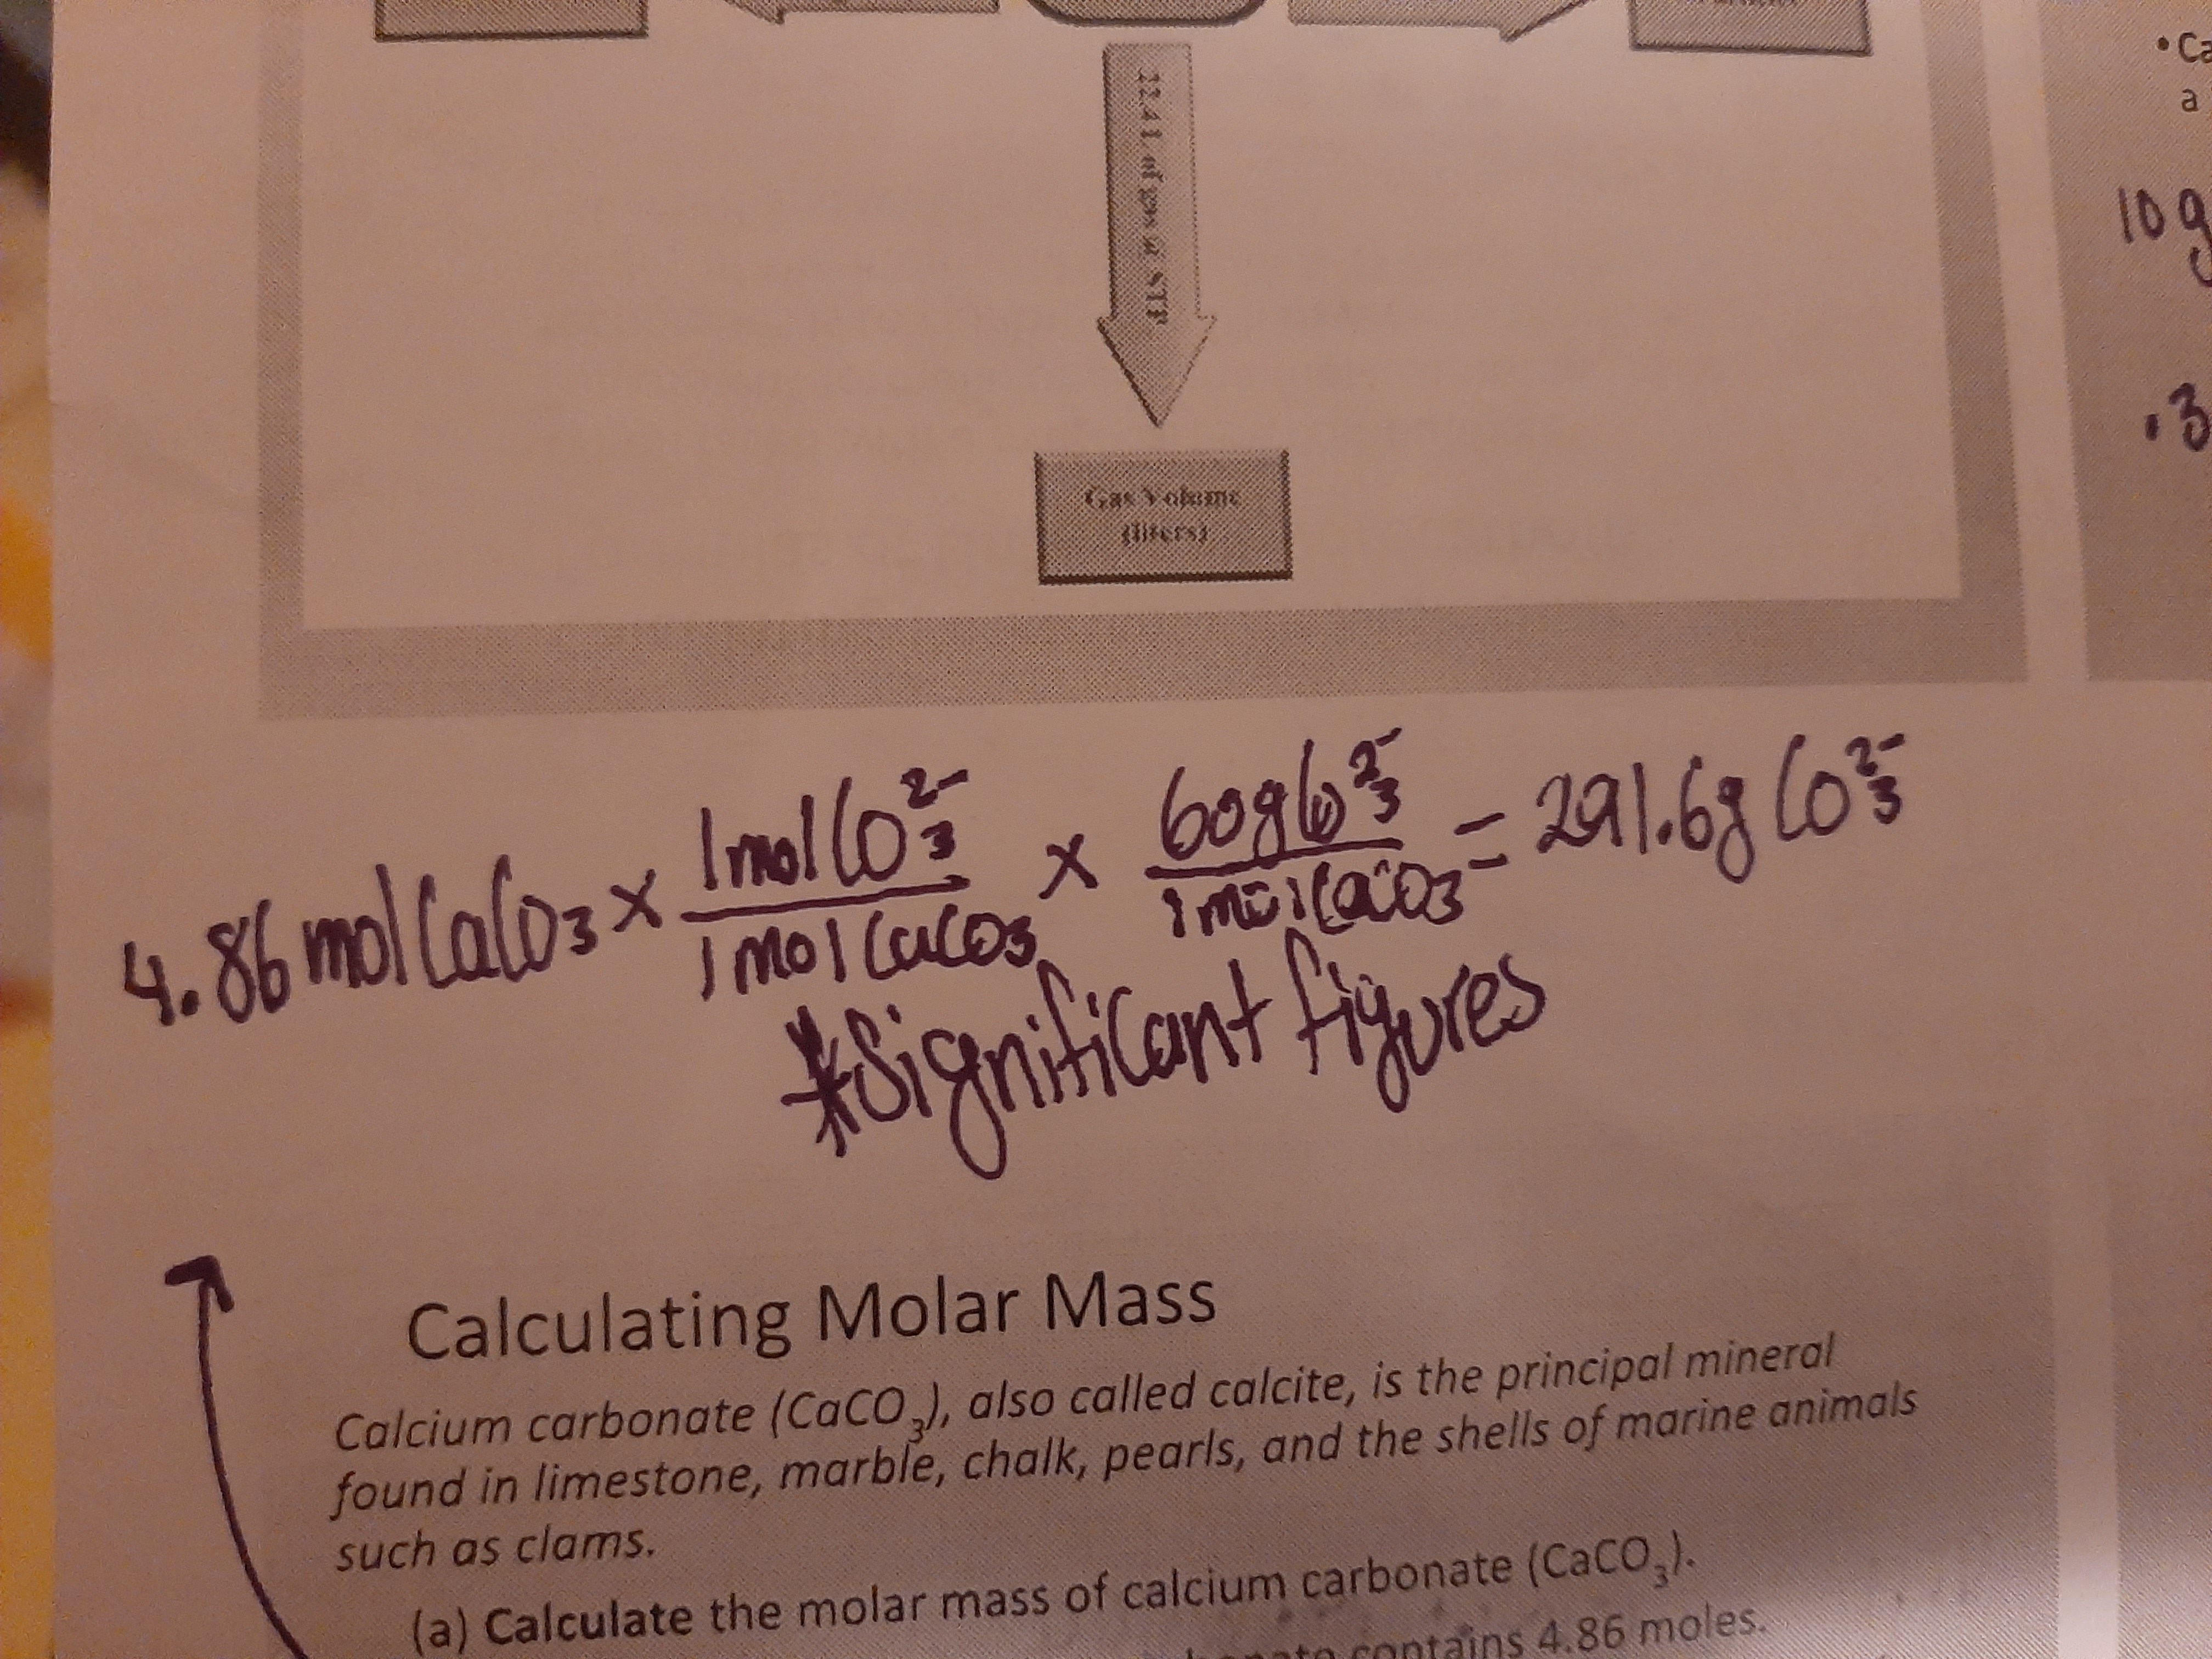 22.4 L of gas at STP
Gas Volume
(liters)
• Ca
a
10 g
.3
4.86 mol CaCO₃ × 1 mol CO₃²⁻ / 1 mol CaCO₃ × 60 g CO₃²⁻ / 1 mol CaCO₃ = 291.6 g CO₃²⁻
*Significant figures
Calculating Molar Mass
Calcium carbonate (CaCO₃), also called calcite, is the principal mineral
found in limestone, marble, chalk, pearls, and the shells of marine animals
such as clams.
(a) Calculate the molar mass of calcium carbonate (CaCO₃).
contains 4.86 moles.